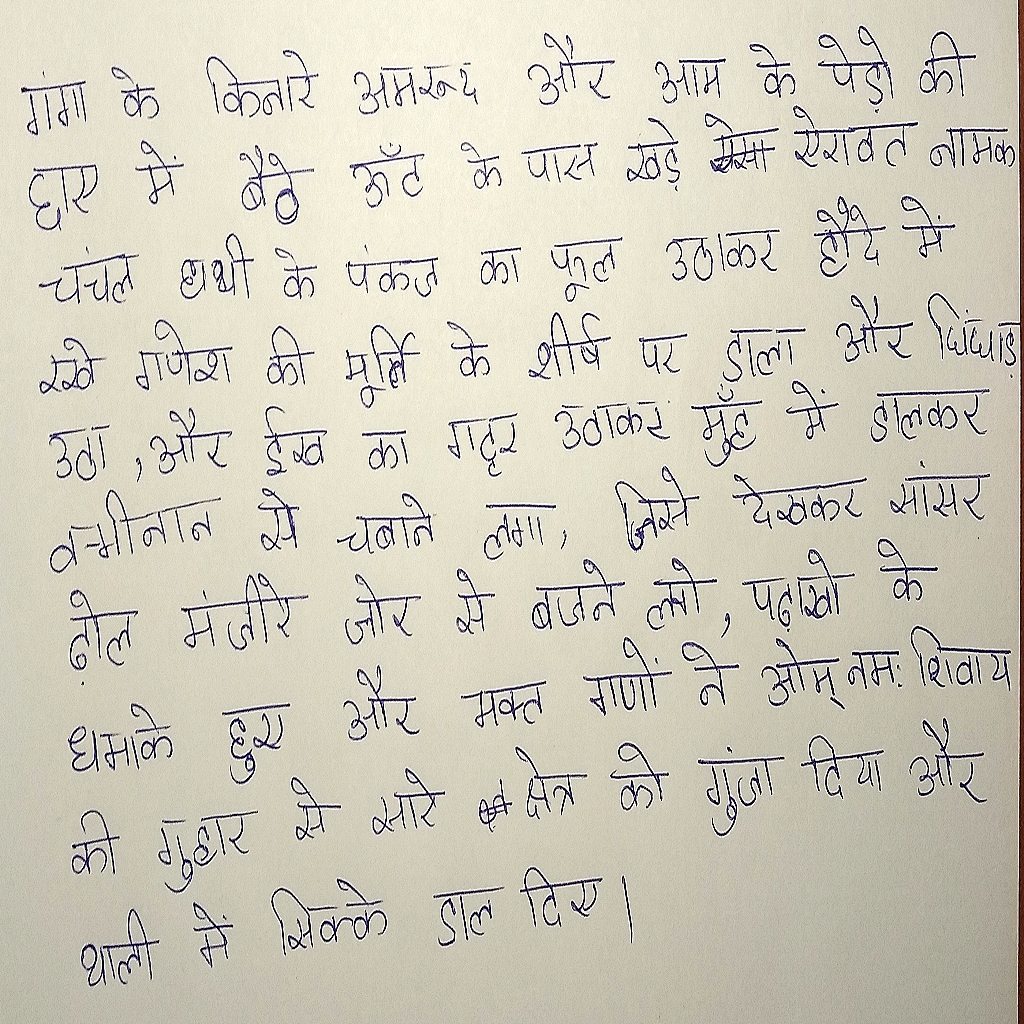 गंगा के किनारे अमरूद और आम के पेड़ो की
छाए में बैठे ऊँट के पास खड़े ऐरावत नामक
चंचल हाथी के पंकज का फूल उठाकर हौदे में
रखे गणेश की मूर्ति के शीर्ष पर ड़ाला और चिंघाड़
उठा , और ईख का गट्ठर उठाकर मुँह में डालकर
से चबाने लगा, जिसे देखकर सांसर
ढ़ोल मंजीरे जोर से बजने लगे, पटाखो के
धमाके हुए और भक्त गणों ने ओम् नमः शिवाय
की गुहार से सारे क्षेत्र को गुंजा दिया और
थाली में सिक्के डाल दिए।